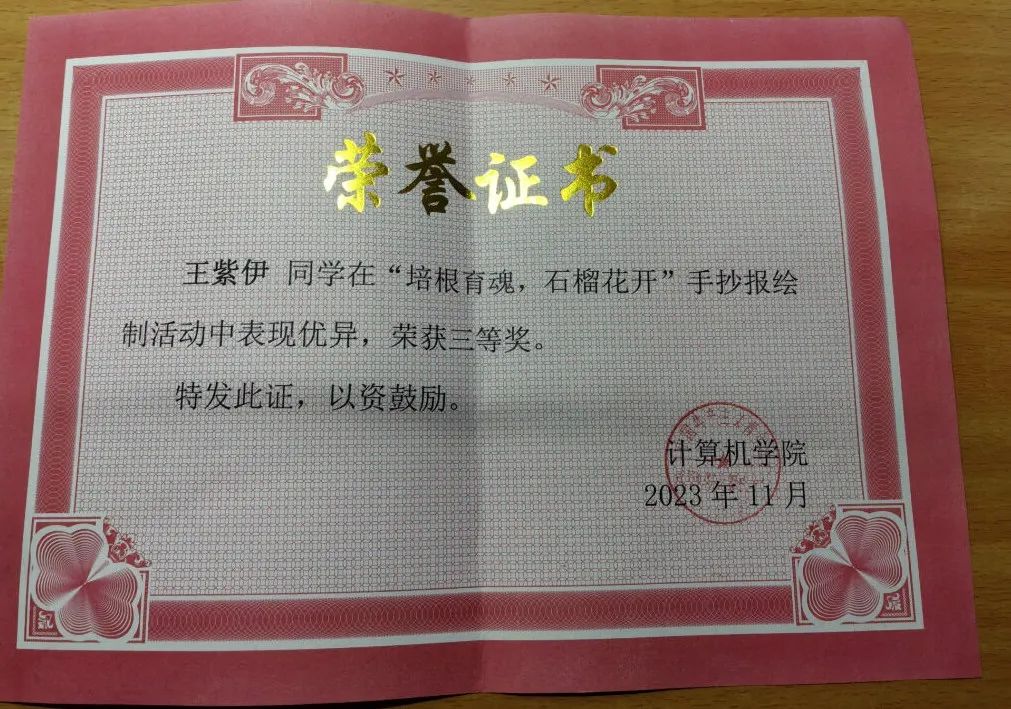 荣誉证书
王紫伊 同学在“培根育魂，石榴花开”手抄报绘
制活动中表现优异，荣获三等奖。
特发此证，以资鼓励。
计算机学院
2023 年 11 月